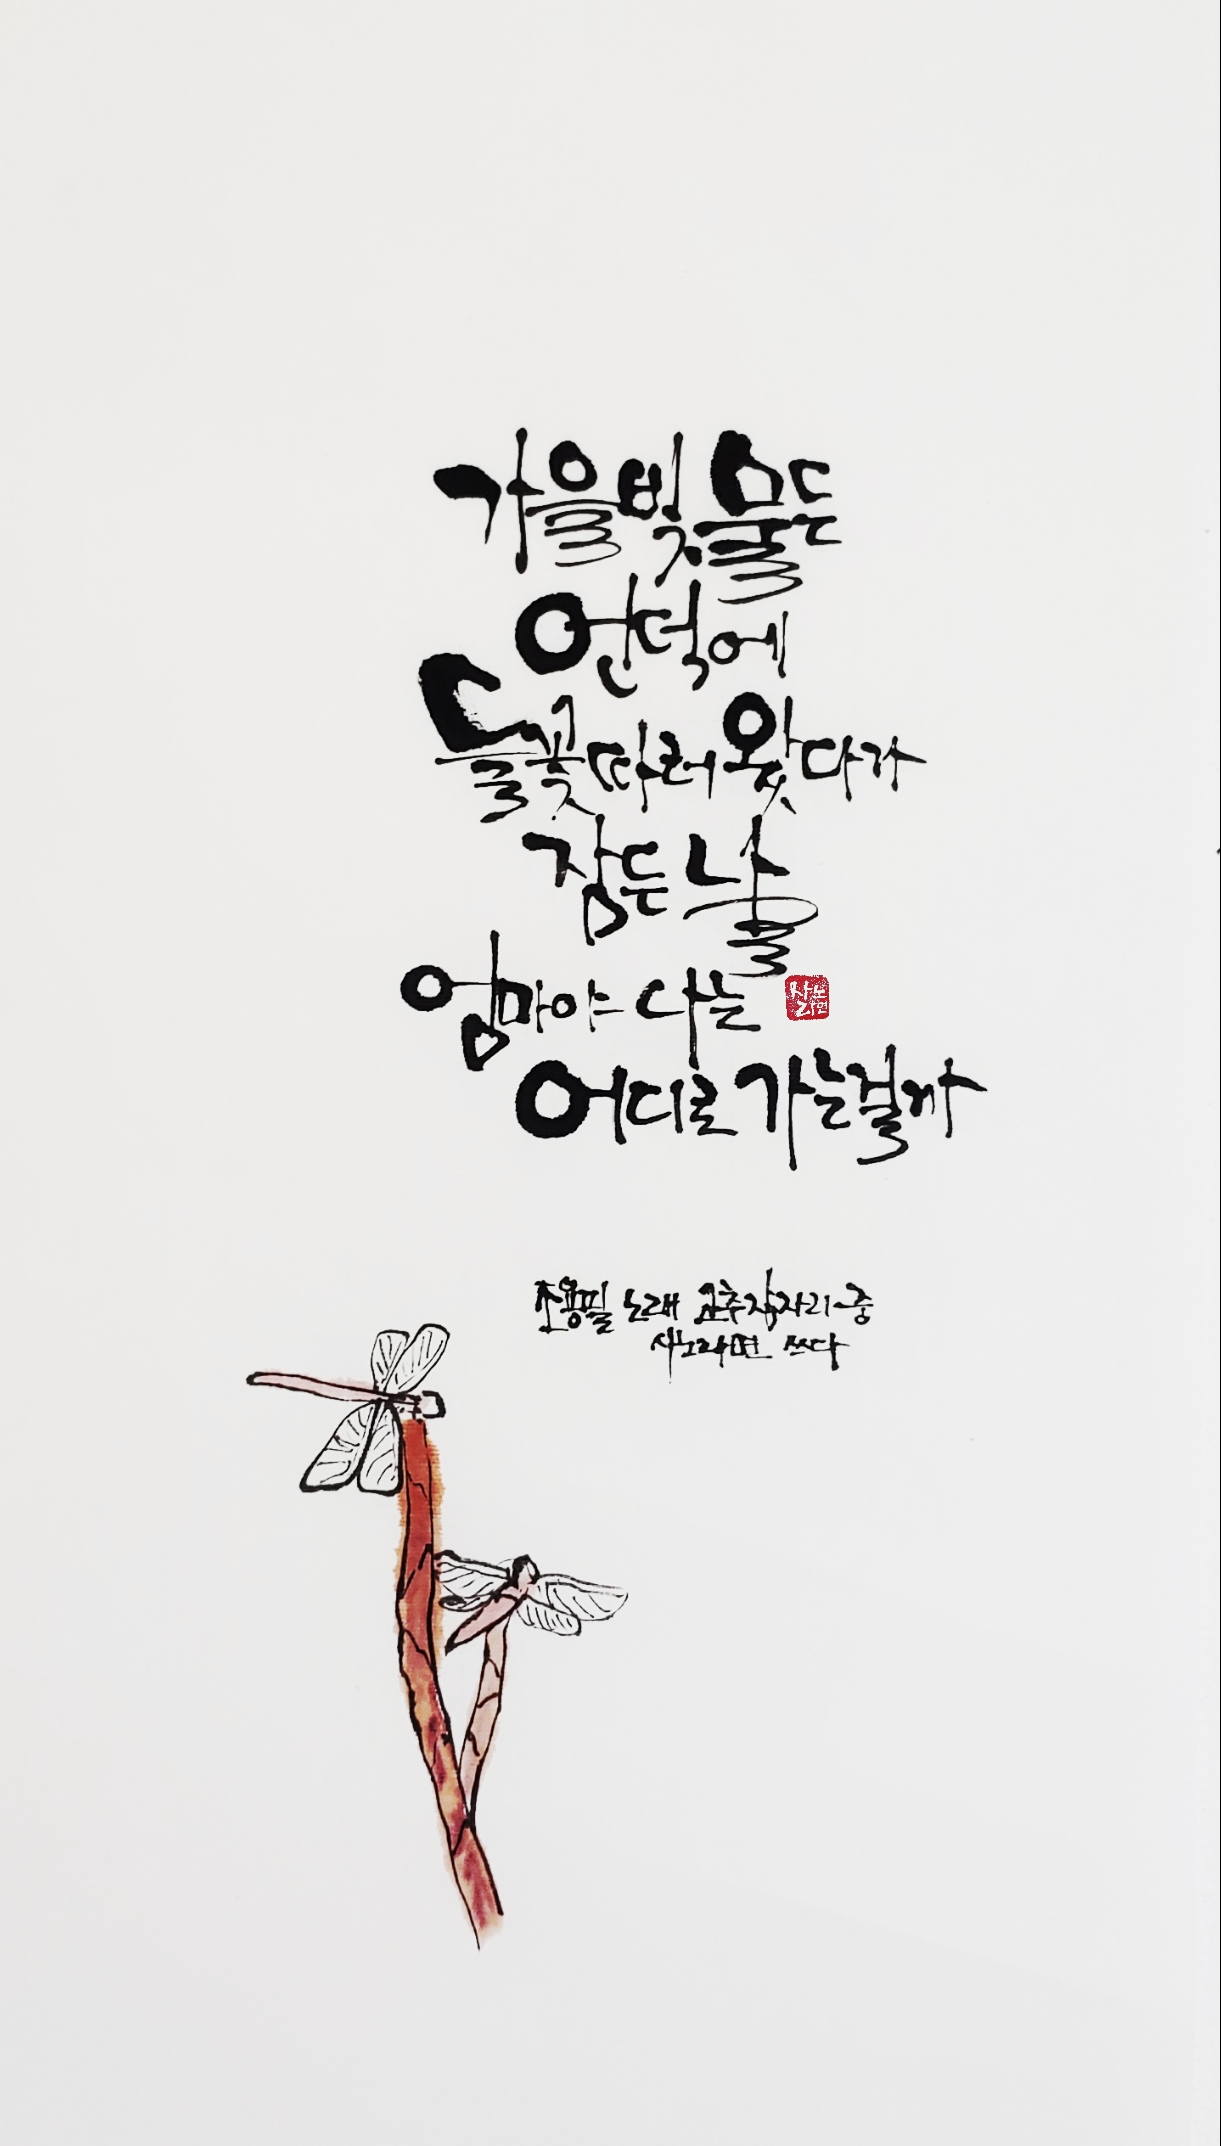 가을빛 물든
언덕에
들꽃 따러 왔다가
잠든 날
엄마야 나는
사노
라면
어디로 가는걸까
조용필 노래 고추잠자리 중
사노라면 쓰다